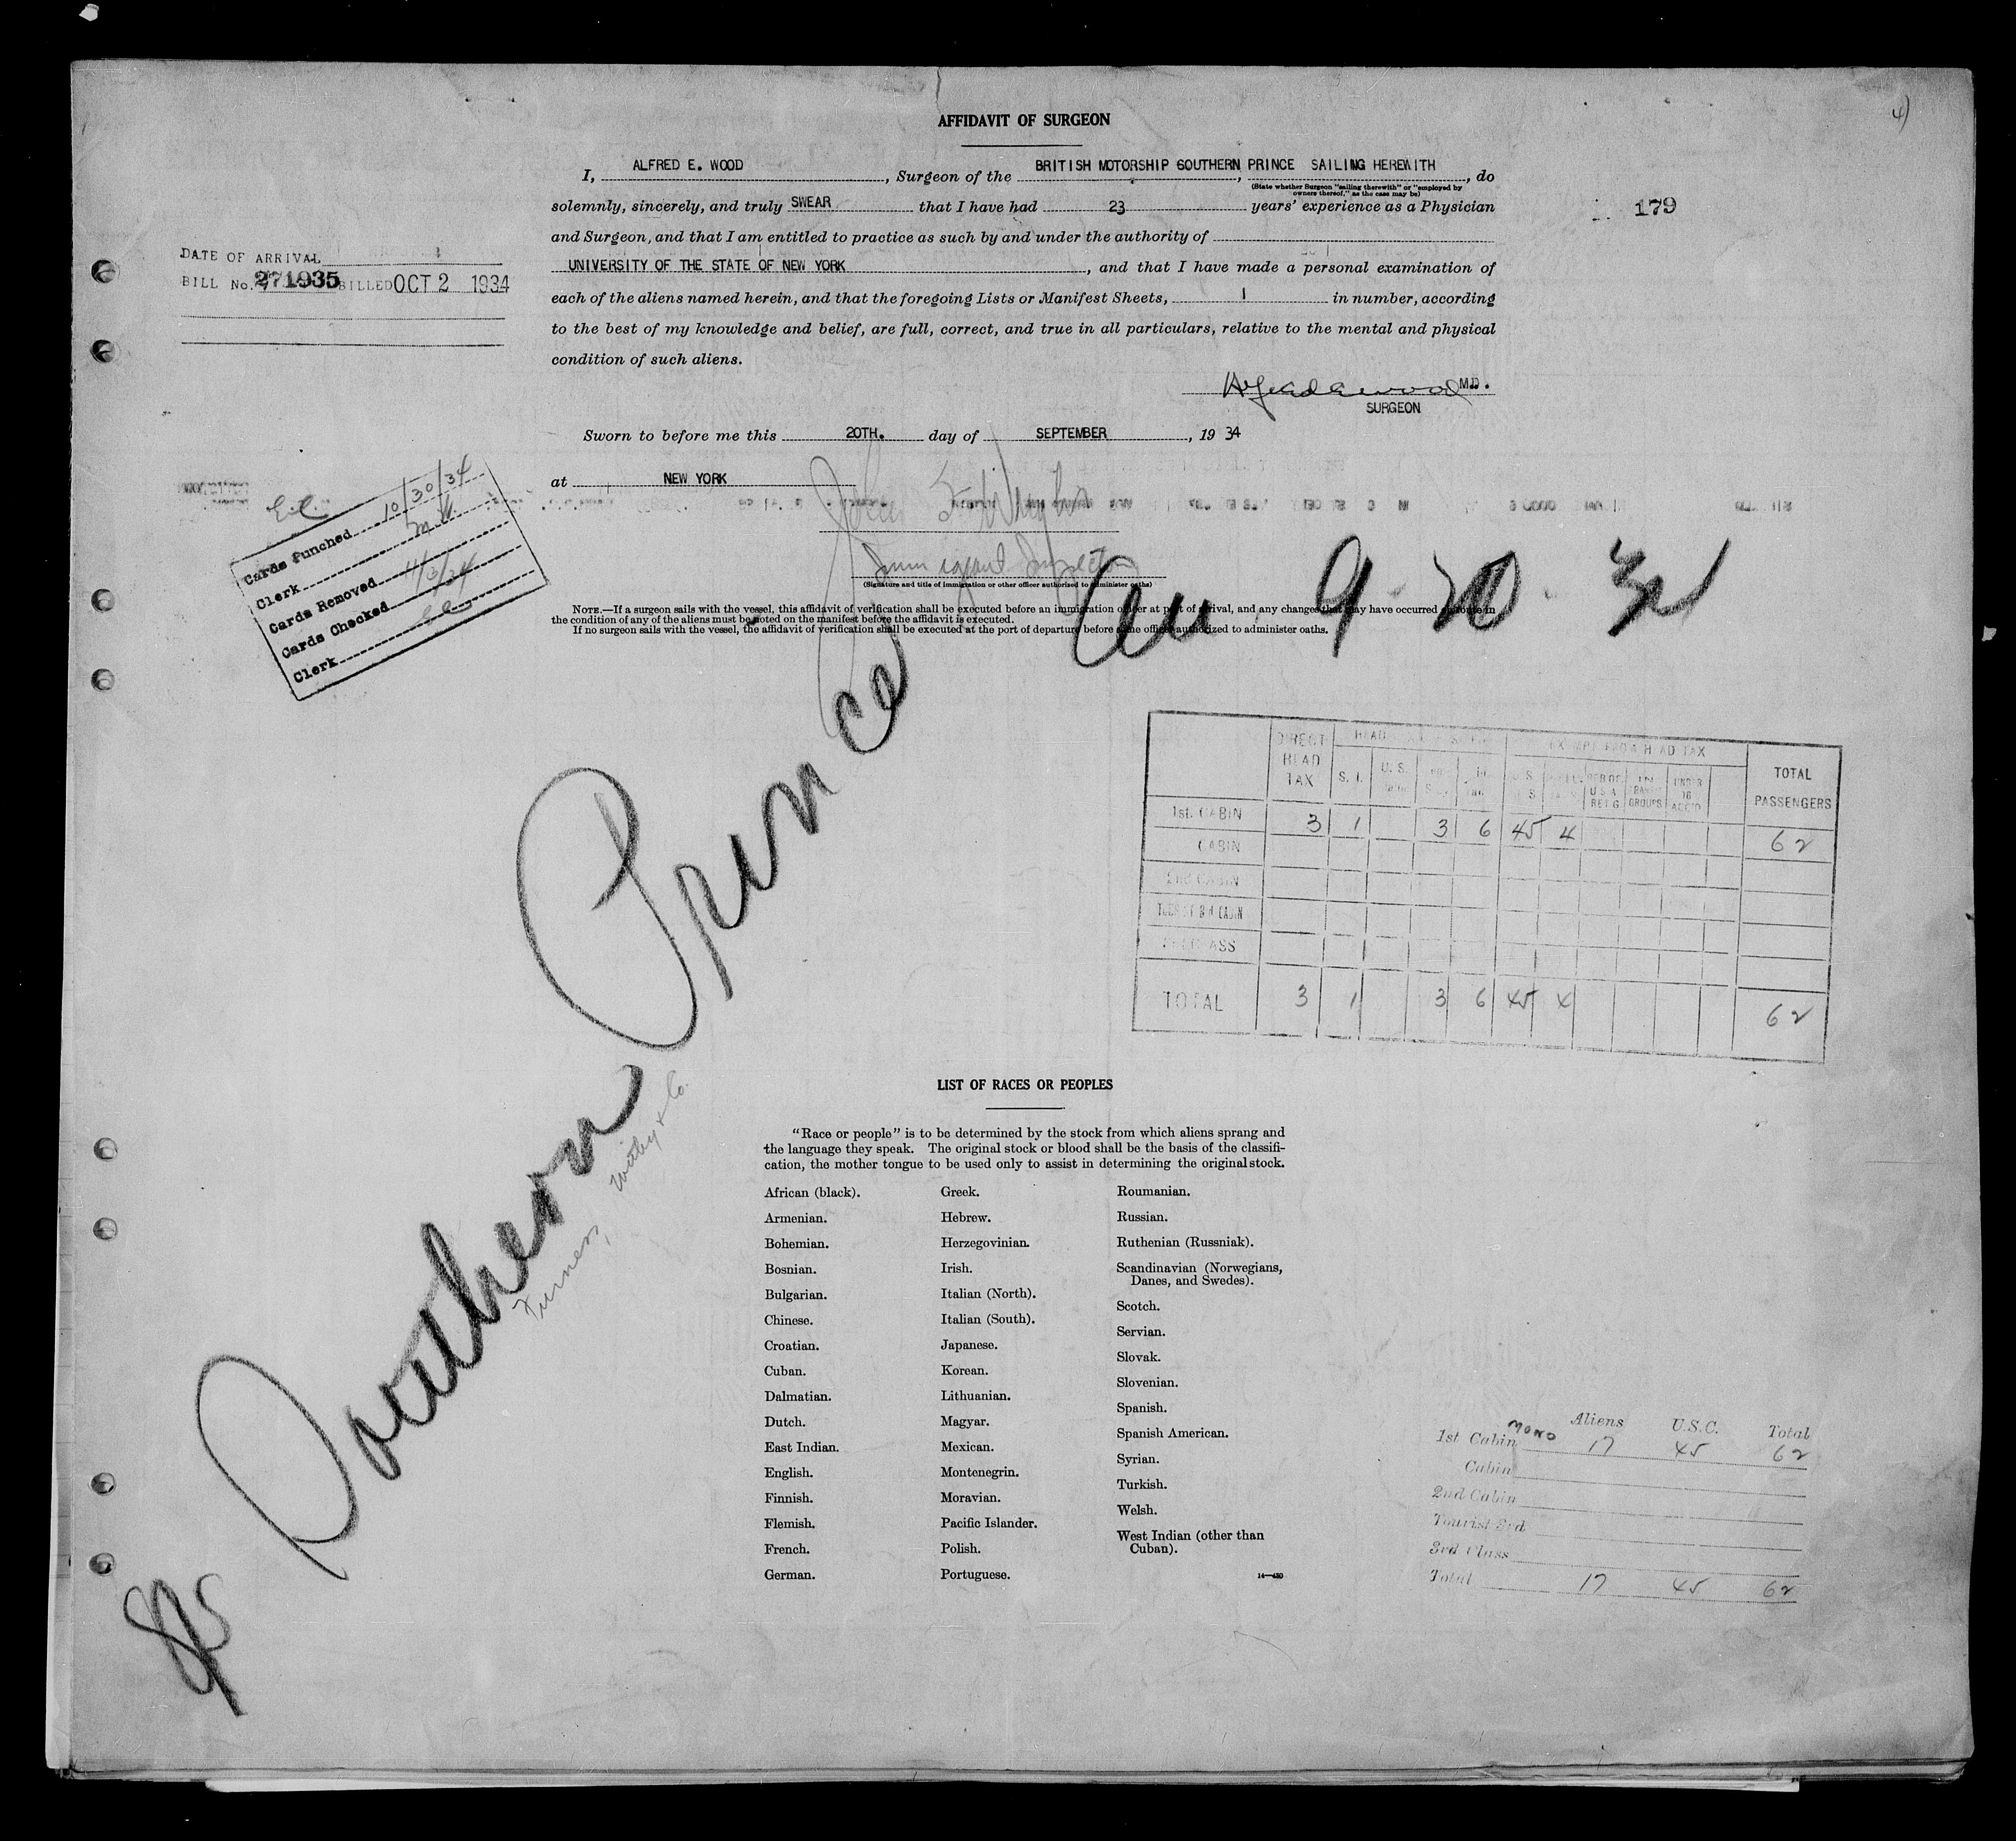 4)
AFFIDAVIT OF SURGEON
I, ALFRED E. WOOD, Surgeon of the BRITISH MOTORSHIP SOUTHERN PRINCE, SAILING HEREWITH, do
(State whether Surgeon "sailing therewith" or "employed by
owners thereof," as the case may be)
solemnly, sincerely, and truly SWEAR that I have had 23 years' experience as a Physician
179
and Surgeon, and that I am entitled to practice as such by and under the authority of
UNIVERSITY OF THE STATE OF NEW YORK, and that I have made a personal examination of
DATE OF ARRIVAL
BILL No. 271935 BILLED OCT 2 1934
each of the aliens named herein, and that the foregoing Lists or Manifest Sheets, 1 in number, according
to the best of my knowledge and belief, are full, correct, and true in all particulars, relative to the mental and physical
condition of such aliens.
Alfred E Wood M.D.
SURGEON
Sworn to before me this 20TH. day of SEPTEMBER, 19 34
at NEW YORK
Immigrant Inspector
(Signature and title of immigration or other officer authorized to administer oaths)
Cards Punched 10/30/34
Clerk
Cards Removed
Cards Checked 11/3/34
Clerk
NOTE.—If a surgeon sails with the vessel, this affidavit of verification shall be executed before an immigration officer at port of arrival, and any changes that may have occurred en route in
the condition of any of the aliens must be noted on the manifest before the affidavit is executed.
If no surgeon sails with the vessel, the affidavit of verification shall be executed at the port of departure before some officer authorized to administer oaths.
9-20-34
Southern Prince
Furness, Withy & Co.
DIRECT HEAD TAX S. I. U. S. EXEMPT FROM HEAD TAX TOTAL PASSENGERS
1st. CABIN 3 1 3 6 45 4 62
CABIN
2nd CABIN
TOURIST 3rd CABIN
3rd CLASS
TOTAL 3 1 3 6 45 4 62
LIST OF RACES OR PEOPLES
"Race or people" is to be determined by the stock from which aliens sprang and
the language they speak. The original stock or blood shall be the basis of the classifi-
cation, the mother tongue to be used only to assist in determining the original stock.
African (black).
Armenian.
Bohemian.
Bosnian.
Bulgarian.
Chinese.
Croatian.
Cuban.
Dalmatian.
Dutch.
East Indian.
English.
Finnish.
Flemish.
French.
German.
Greek.
Hebrew.
Herzegovinian.
Irish.
Italian (North).
Italian (South).
Japanese.
Korean.
Lithuanian.
Magyar.
Mexican.
Montenegrin.
Moravian.
Pacific Islander.
Polish.
Portuguese.
Roumanian.
Russian.
Ruthenian (Russniak).
Scandinavian (Norwegians,
Danes, and Swedes).
Scotch.
Servian.
Slovak.
Slovenian.
Spanish.
Spanish American.
Syrian.
Turkish.
Welsh.
West Indian (other than
Cuban).
14—430
Aliens U.S.C. Total
1st Cabin MONO 17 45 62
Cabin
2nd Cabin
Tourist 3rd
3rd Class
Total 17 45 62